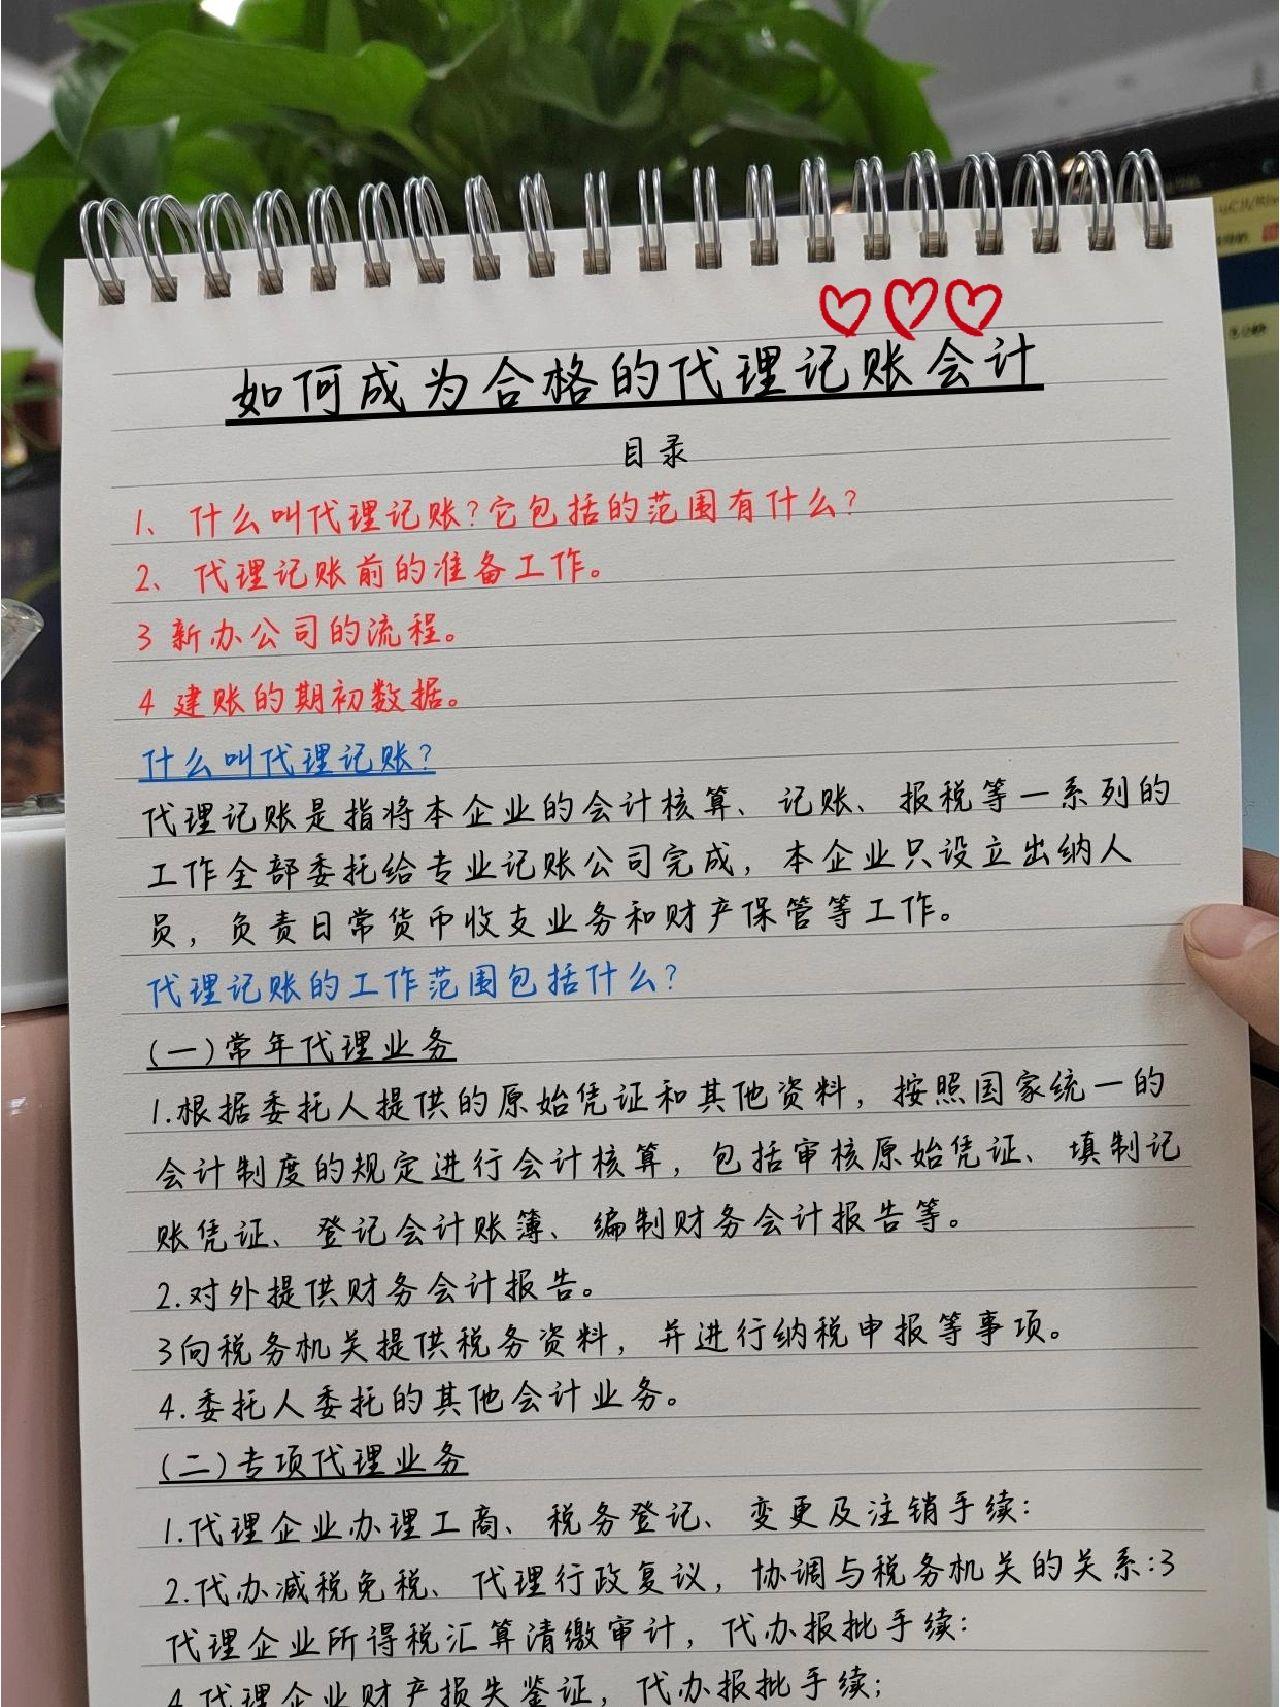 如何成为合格的代理记账会计
目录
1、什么叫代理记账?它包括的范围有什么?
2、代理记账前的准备工作。
3 新办公司的流程。
4 建账的期初数据。
什么叫代理记账?
代理记账是指将本企业的会计核算、记账、报税等一系列的
工作全部委托给专业记账公司完成，本企业只设立出纳人
员，负责日常货币收支业务和财产保管等工作。
代理记账的工作范围包括什么?
(一)常年代理业务
1.根据委托人提供的原始凭证和其他资料，按照国家统一的
会计制度的规定进行会计核算，包括审核原始凭证、填制记
账凭证、登记会计账簿、编制财务会计报告等。
2.对外提供财务会计报告。
3向税务机关提供税务资料，并进行纳税申报等事项。
4.委托人委托的其他会计业务。
(二)专项代理业务
1.代理企业办理工商、税务登记、变更及注销手续:
2.代办减税免税、代理行政复议，协调与税务机关的关系:3
代理企业所得税汇算清缴审计，代办报批手续:
4.代理企业财产损失鉴证，代办报批手续;